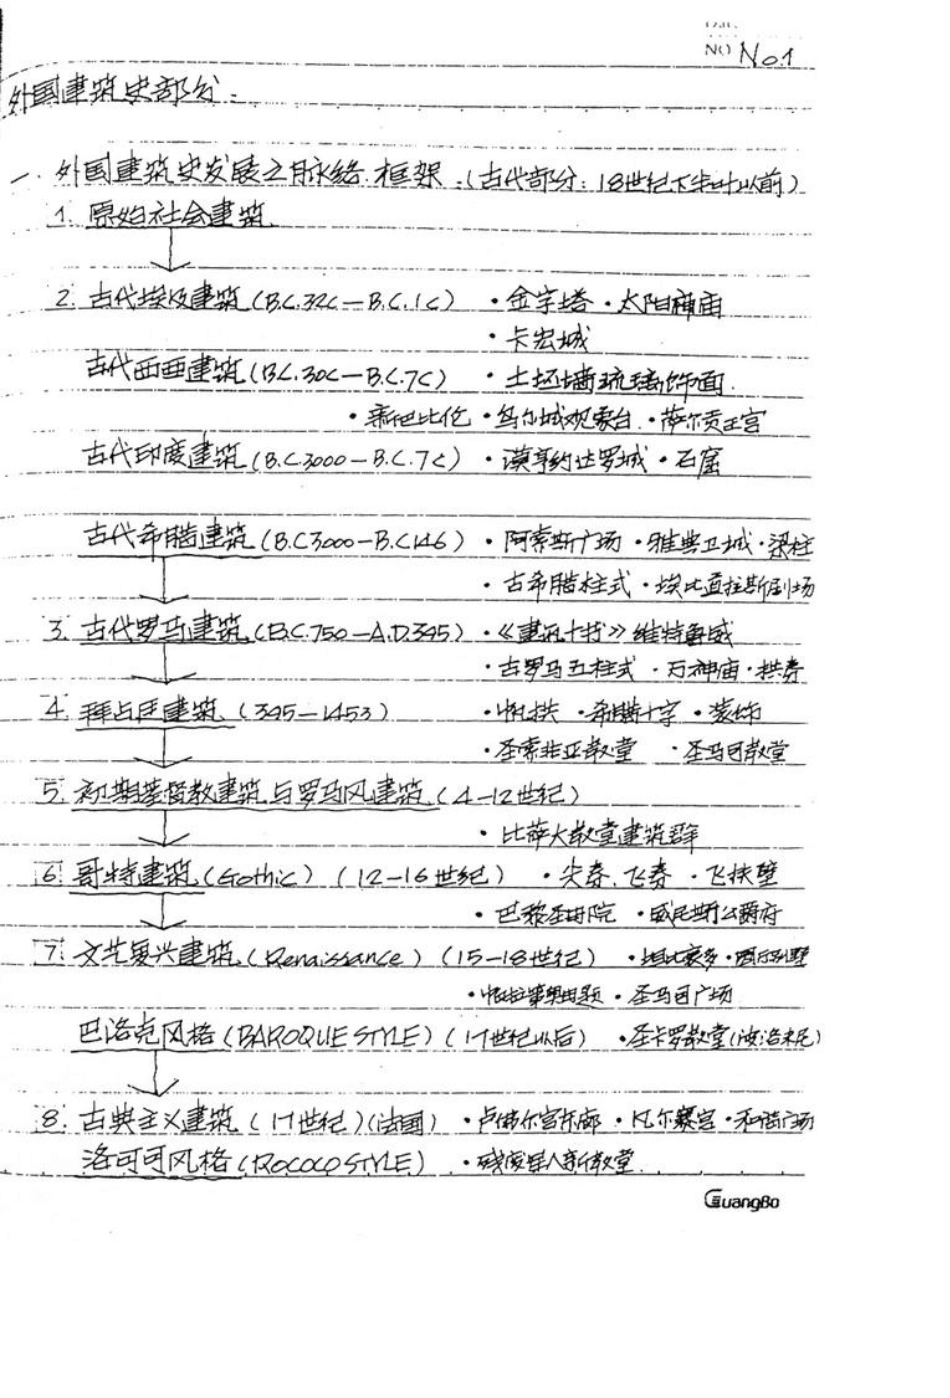 NO No.1
外国建筑史部分:
一. 外国建筑史发展之脉络框架:(古代部分:18世纪下半叶以前)
1. 原始社会建筑
2. 古代埃及建筑(B.C.32C—B.C.1C) ·金字塔 ·太阳神庙
·卡宏城
古代西亚建筑(B.C.30C—B.C.7C) ·土坯墙琉璃饰面.
·新巴比伦 ·乌尔城观象台 ·萨尔贡王宫
古代印度建筑(B.C.3000—B.C.7C) ·谟亨约达罗城 ·石窟
古代希腊建筑(B.C3000—B.C146) ·阿索斯广场 ·雅典卫城 ·梁柱
·古希腊柱式 ·埃比道拉斯剧场
3. 古代罗马建筑(B.C.750—A.D.395) ·《建筑十书》维特鲁威
·古罗马五柱式 ·万神庙 ·拱券
4. 拜占庭建筑(395—1453) ·帆拱 ·希腊十字 ·装饰
·圣索菲亚教堂 ·圣马可教堂
5. 初期基督教建筑与罗马风建筑(4—12世纪)
·比萨大教堂建筑群
6. 哥特建筑(Gothic)(12—16世纪) ·尖券.飞券 ·飞扶壁
·巴黎圣母院 ·威尼斯公爵府
7. 文艺复兴建筑(Renaissance)(15—18世纪) ·坦比哀多 ·圆厅别墅
·帕拉第奥母题 ·圣马可广场
巴洛克风格(BAROQUE STYLE)(17世纪以后) ·圣卡罗教堂(波洛米尼)
8. 古典主义建筑(17世纪)(法国) ·卢佛尔宫东廊 ·凡尔赛宫 ·和谐广场
洛可可风格(ROCOCO STYLE) ·残废军人新教堂
GuangBo